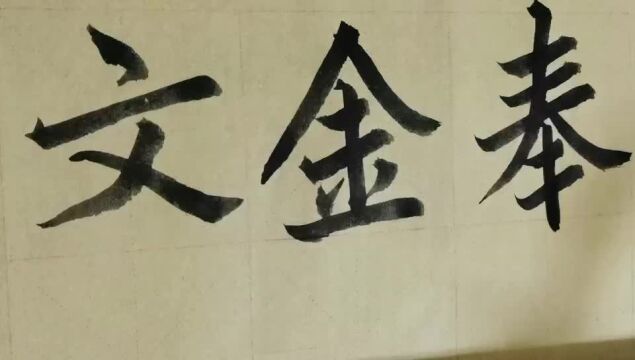 文金奉